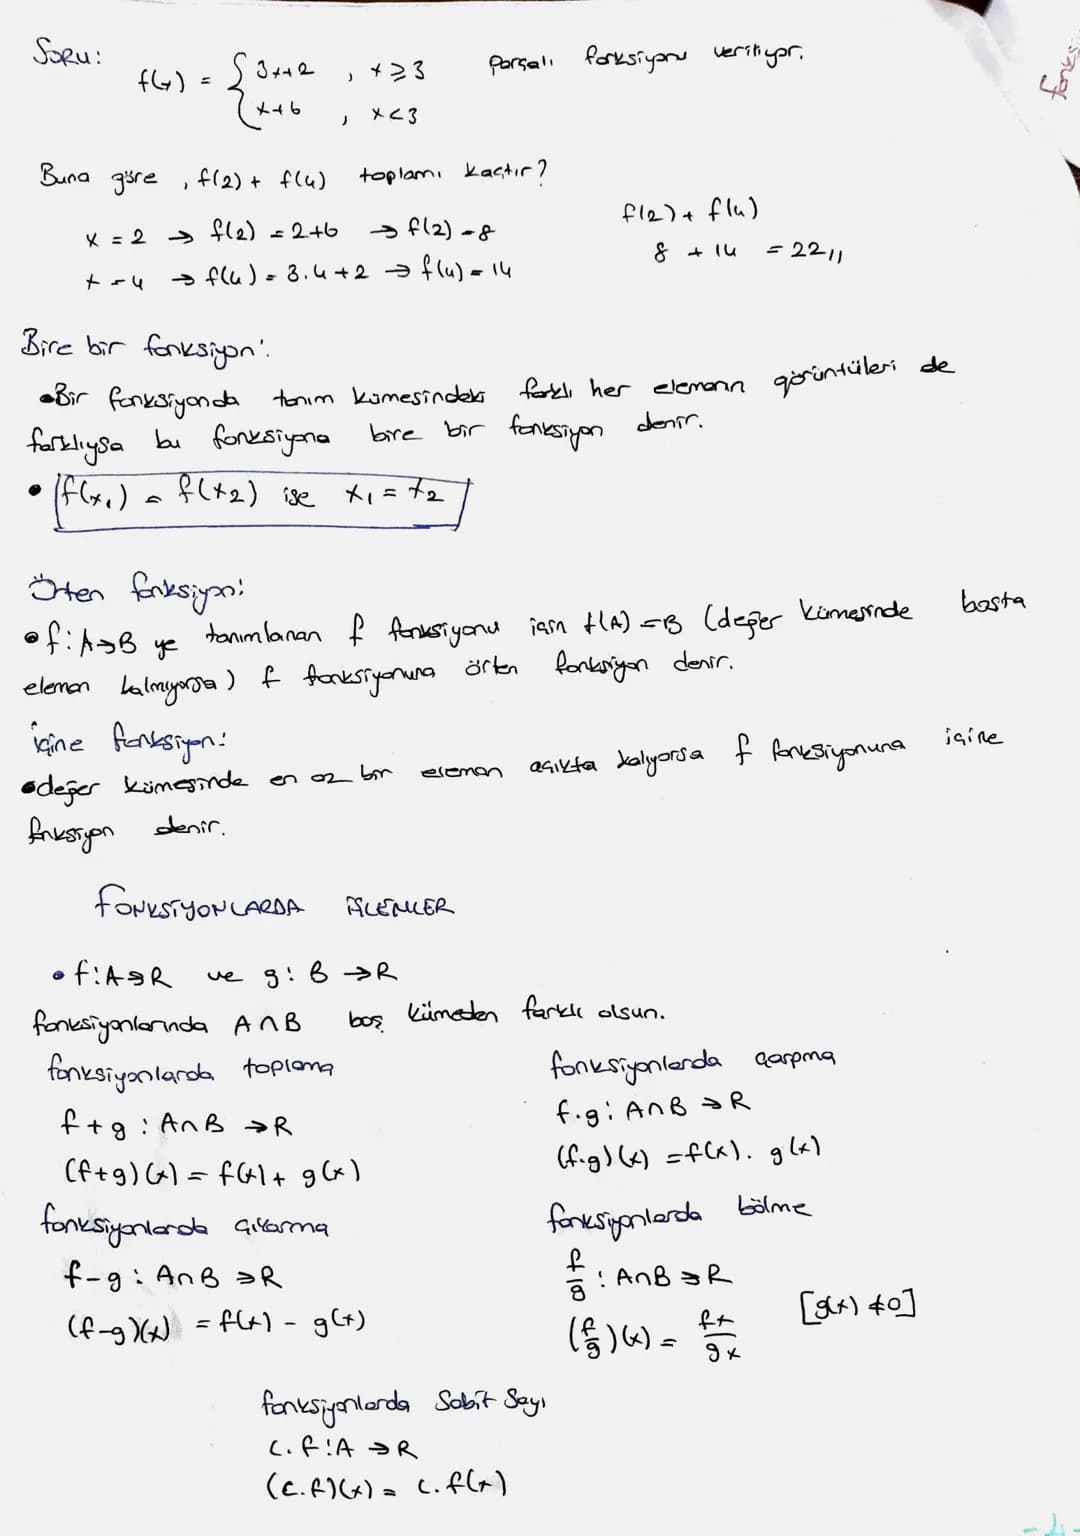 SORU:
f(x) = { 3x+2 , x ≥ 3 parçalı fonksiyonu veriliyor.
x+6 , x < 3
Buna göre , f(2) + f(4) toplamı kaçtır?
x = 2 → f(2) = 2+6 → f(2) = 8
x = 4 → f(4) = 3.4+2 → f(4) = 14
f(2) + f(4)
8 + 14 = 22//
Bire bir fonksiyon:
• Bir fonksiyonda tanım kümesindeki farklı her elemanın görüntüleri de
farklıysa bu fonksiyona bire bir fonksiyon denir.
• f(x₁) = f(x₂) ise x₁ = x₂
Örten fonksiyon:
• f: A→B ye tanımlanan f fonksiyonu için f(A) = B (değer kümesinde boşta
eleman kalmıyorsa) f fonksiyonuna örten fonksiyon denir.
içine fonksiyon:
• değer kümesinde en az bir eleman açıkta kalıyorsa f fonksiyonuna içine
fonksiyon denir.
FONKSİYONLARDA İŞLEMLER
• f: A→R ve g: B → R
fonksiyonlarında A∩B boş kümeden farklı olsun.
fonksiyonlarda toplama
f+g : A∩B → R
(f+g)(x) = f(x) + g(x)
fonksiyonlarda çıkarma
f-g : A∩B → R
(f-g)(x) = f(x) - g(x)
fonksiyonlarda çarpma
f.g : A∩B → R
(f.g)(x) = f(x). g(x)
fonksiyonlarda bölme
f/g : A∩B → R
(f/g)(x) = fx/gx [g(x) ≠ 0]
fonksiyonlarda Sabit Sayı
c.f: A → R
(c.f)(x) = c.f(x)